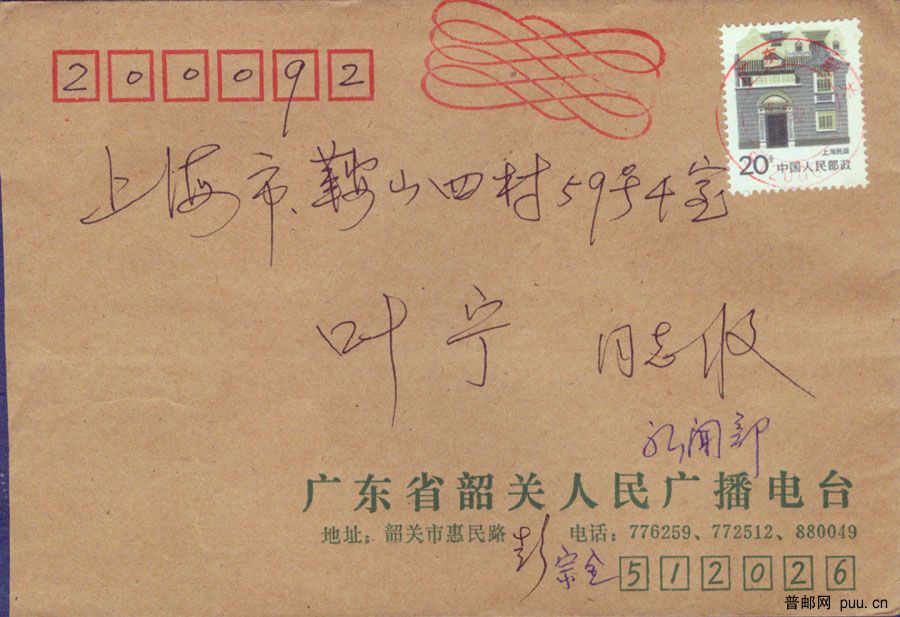 200092
上海民居
20分 中国人民邮政
上海市、鞍山四村59号4室
叶宁 同志收
新闻部
广东省韶关人民广播电台
地址：韶关市惠民路 电话：776259、772512、880049
彭宗全 512026
普邮网 puu.cn